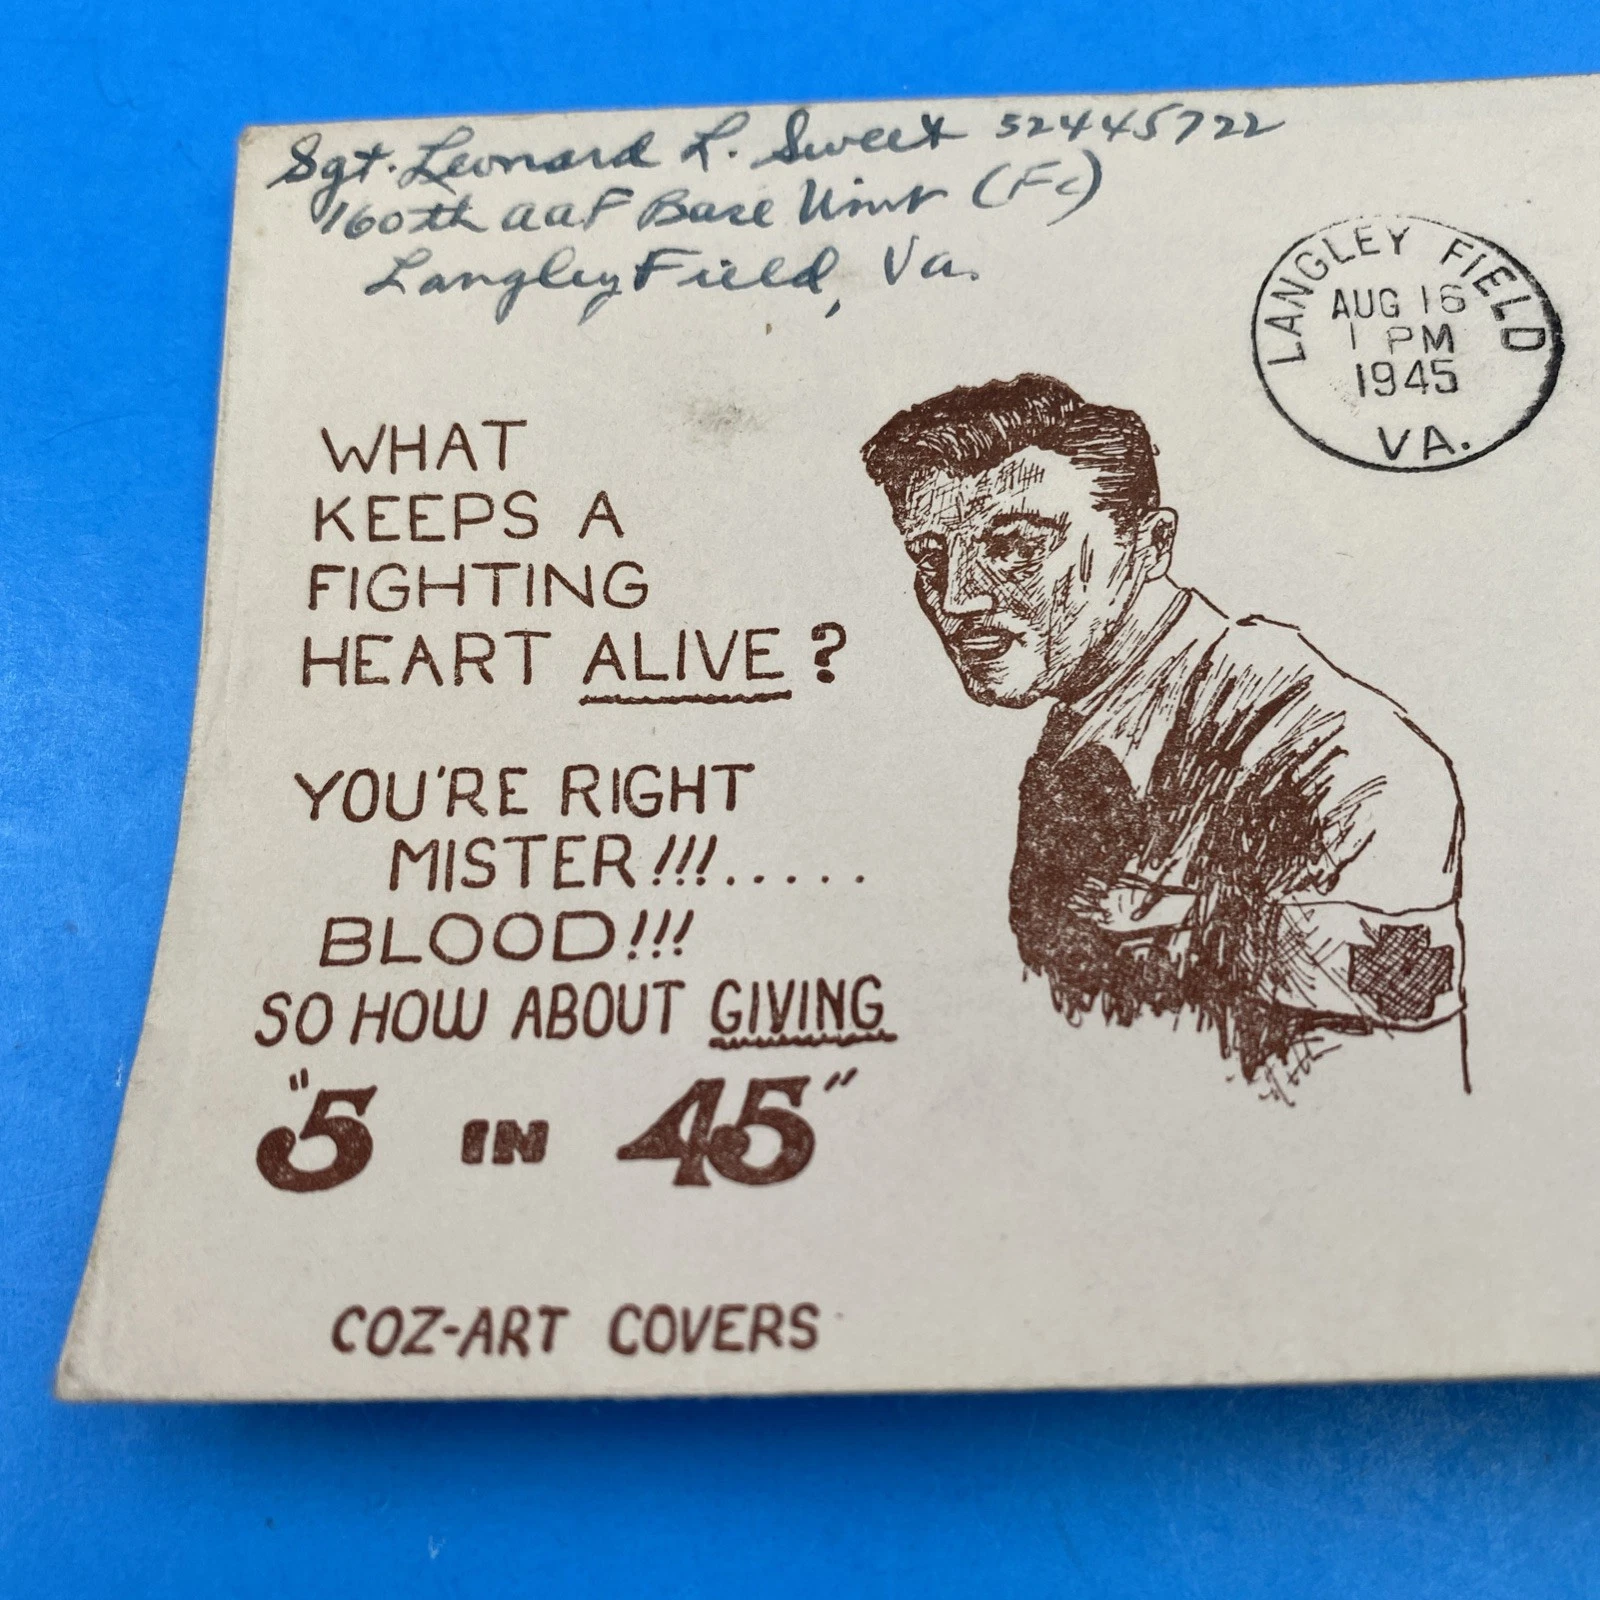 Sgt. Leonard L. Sweet 52445722
160th AAF Base Unit (Fc)
Langley Field, Va.
LANGLEY FIELD
AUG 16
1 PM
1945
VA.
WHAT
KEEPS A
FIGHTING
HEART ALIVE?
YOU'RE RIGHT
MISTER!!!.....
BLOOD!!!
SO HOW ABOUT GIVING
"5 IN 45"
COZ-ART COVERS